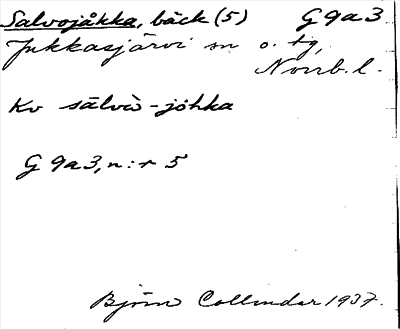 Salvojåkka, bäck (5) G 9a3
Jukkasjärvi sn o. tg,
Norrb. l.
Kv sālvò-jòhka
G 9a3, n:r 5
Björn Collinder 1937.